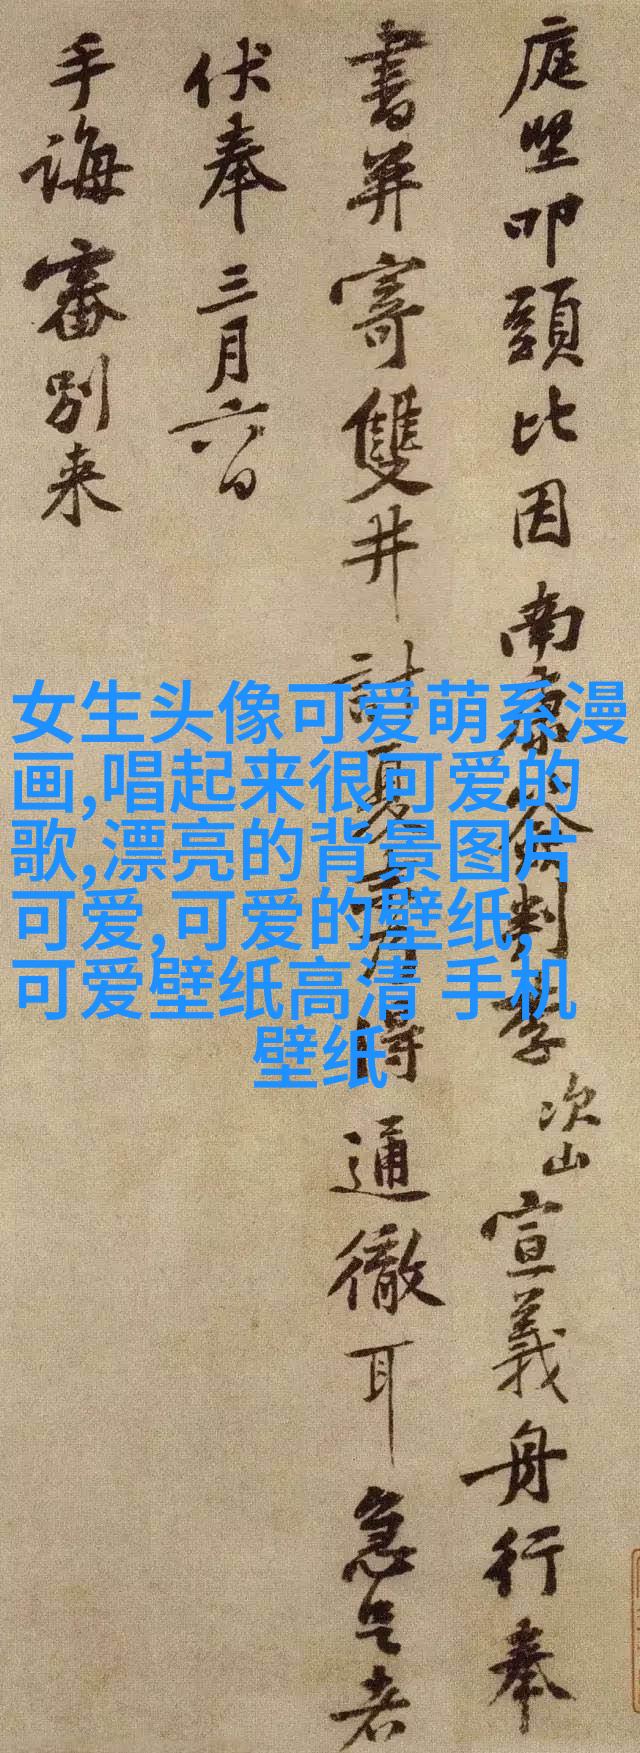 庭堅叩頭比因南康簽判李次山宣義舟行奉
書并寄雙井計夏得通徹耳急足者
伏奉三月六日
手誨審別来
女生头像可爱萌系漫
画,唱起来很可爱的
歌,漂亮的背景图片
可爱,可爱的壁纸,
可爱壁纸高清 手机
壁纸